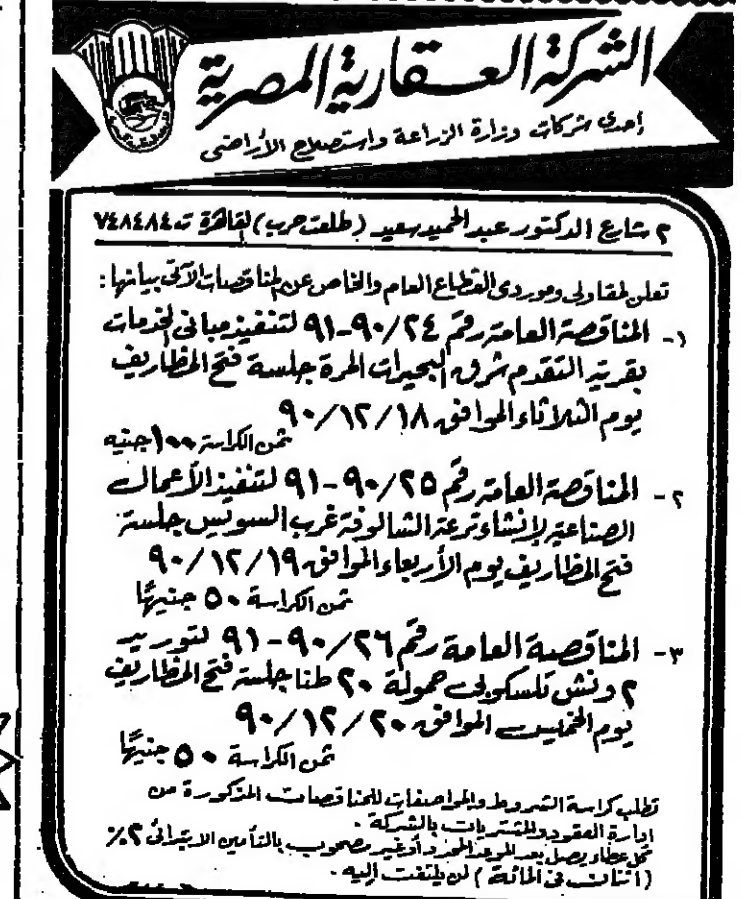 الشركة العقارية المصرية
إحدى شركات وزارة الزراعة واستصلاح الأراضى
٢ شارع الدكتور عبد الحميد سعيد (طلعت حرب) القاهرة ت ٧٤٨٤٨٤
تعلن لمقاولى وموردى القطاع العام والخاص عن المناقصات الآتى بيانها :
١- المناقصة العامة رقم ٩٠/٢٤-٩١ لتنفيذ مبانى الخدمات
بقرية التقدم شرق البحيرات المرة جلسة فتح المظاريف
يوم الثلاثاء الموافق ٩٠/١٢/١٨
ثمن الكراسة ١٠٠ جنيه
٢- المناقصة العامة رقم ٩٠/٢٥-٩١ لتنفيذ الأعمال
الصناعية لإنشاء ترعة الشالوفة غرب السويس جلسة
فتح المظاريف يوم الأربعاء الموافق ٩٠/١٢/١٩
ثمن الكراسة ٥٠ جنيهًا
٣- المناقصة العامة رقم ٩٠/٢٦-٩١ لتوريد
٢ ونش تلسكوبى حمولة ٢٠ طنا جلسة فتح المظاريف
يوم الخميس الموافق ٩٠/١٢/٢٠
ثمن الكراسة ٥٠ جنيهًا
تطلب كراسة الشروط والمواصفات للمناقصات المذكورة من
إدارة العقود والمشتريات بالشركة .
كل عطاء يصل بعد الموعد المحدد أو غير مصحوب بالتأمين الابتدائى ٢٪
(اثنان فى المائة) لن يلتفت إليه .